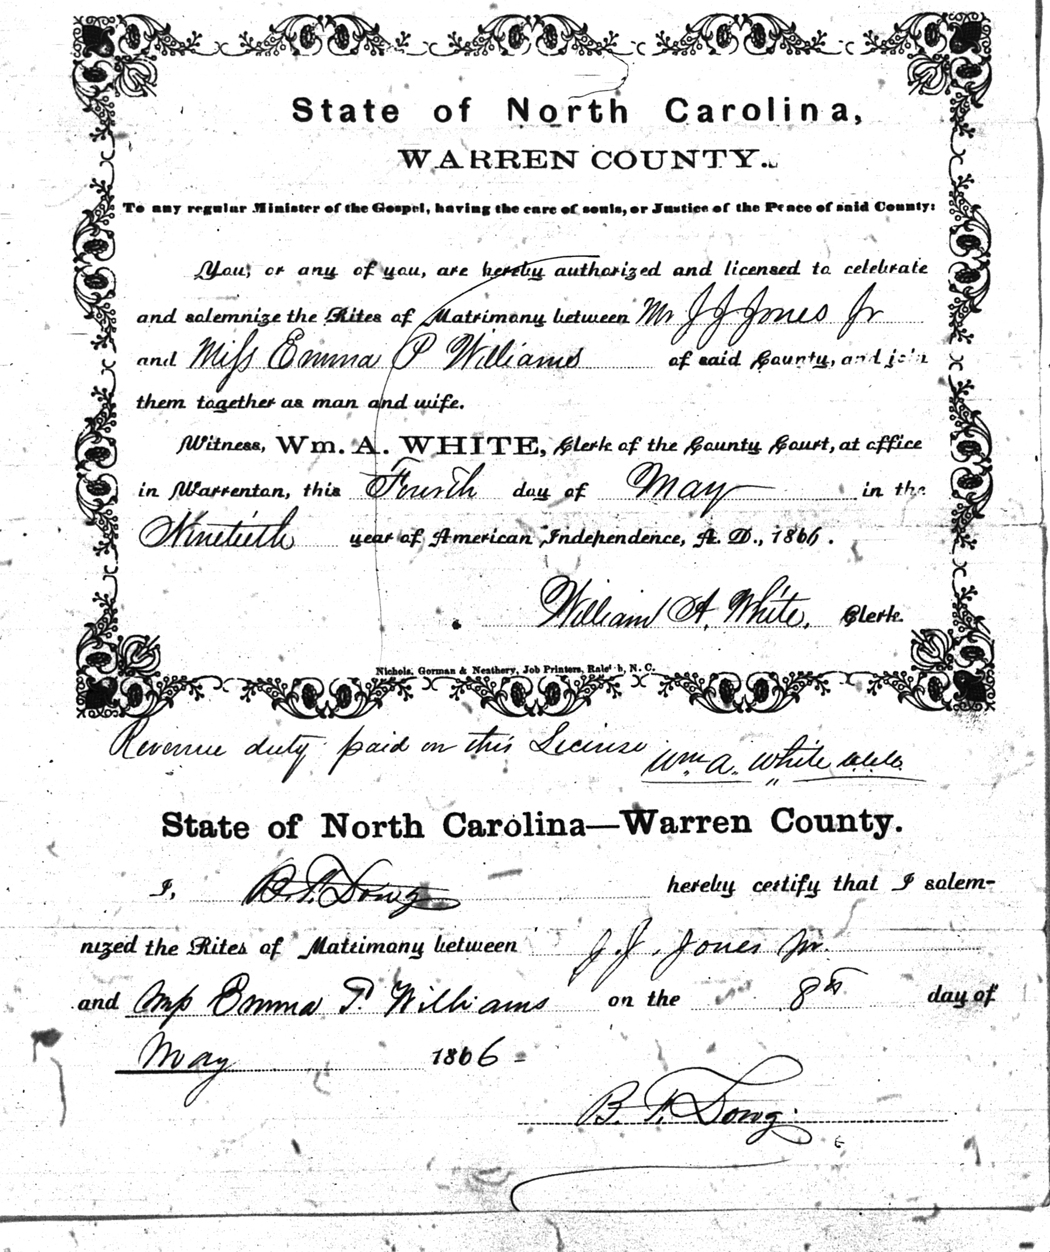 State of North Carolina,
WARREN COUNTY.
To any regular Minister of the Gospel, having the care of souls, or Justice of the Peace of said County:
You, or any of you, are hereby authorized and licensed to celebrate
and solemnize the Rites of Matrimony between Mr J J Jones Jr
and Miss Emma P Williams of said County, and join
them together as man and wife.
Witness, Wm. A. WHITE, Clerk of the County Court, at office
in Warrenton, this Fourth day of May in the
Ninetieth year of American Independence, A. D., 1866.
William A. White, Clerk.
Nichols, Gorman & Neathery, Job Printers, Raleigh, N. C.
Revenue duty paid on this License Wm A. White
State of North Carolina—Warren County.
I, B. F. Long hereby certify that I solem-
nized the Rites of Matrimony between J. J. Jones Jr.
and Miss Emma P. Williams on the 8th day of
May 1866
B. F. Long